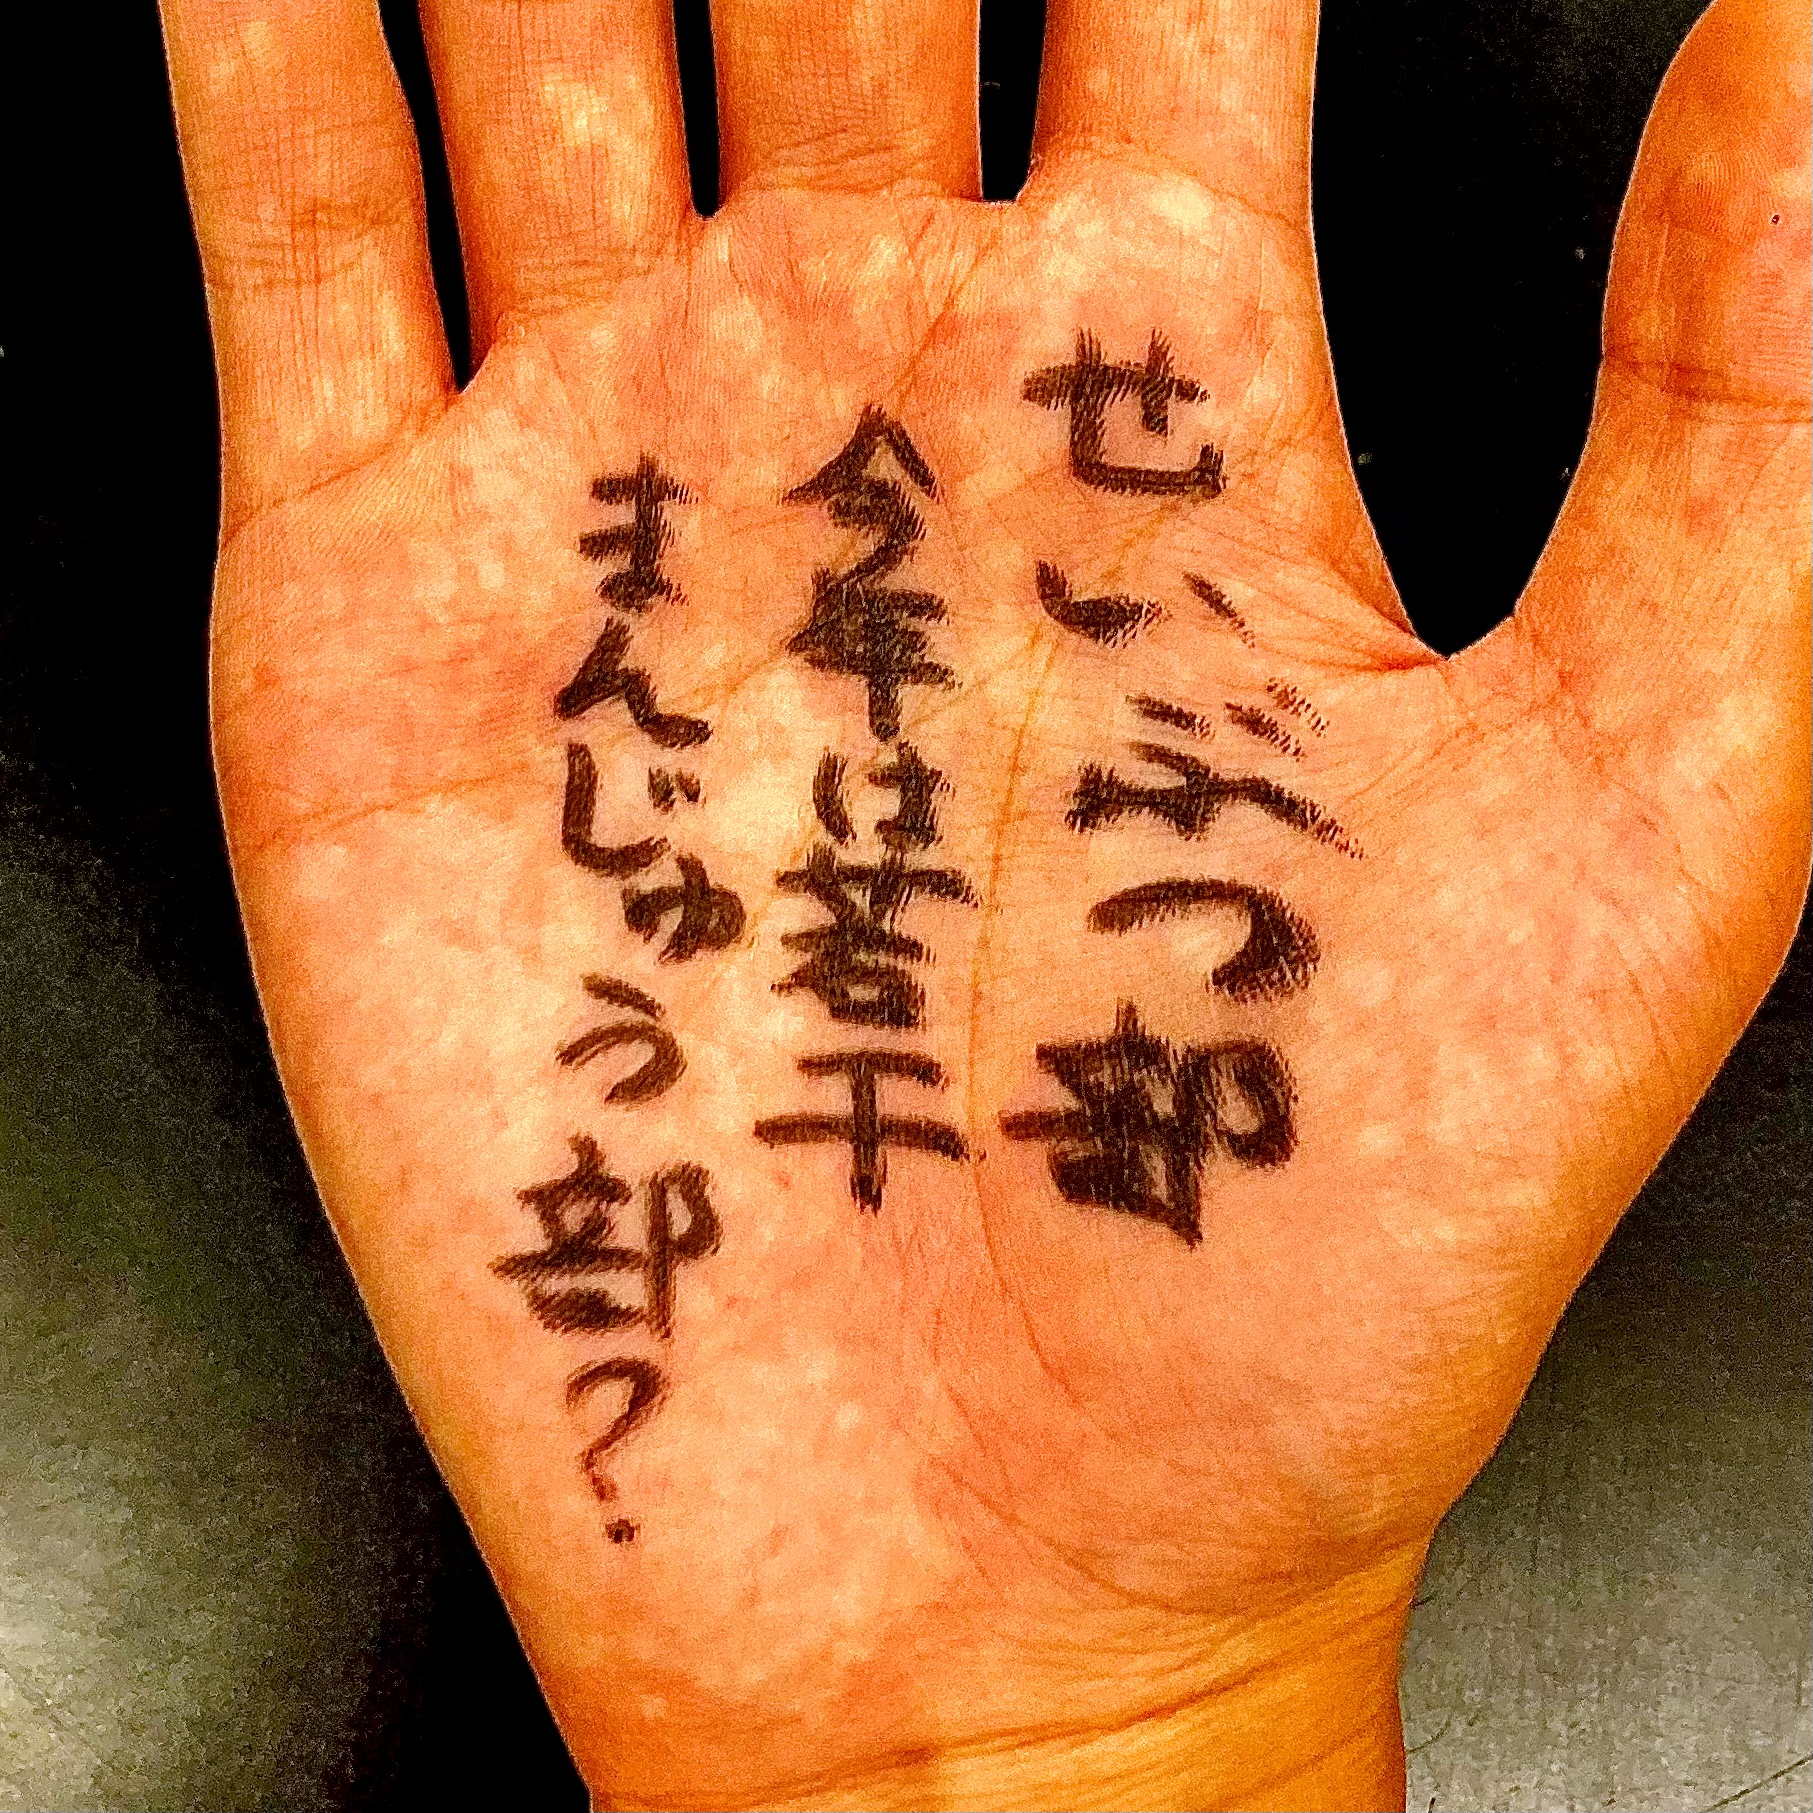 せいぶつ部
今年は若干
まんじゅう部?